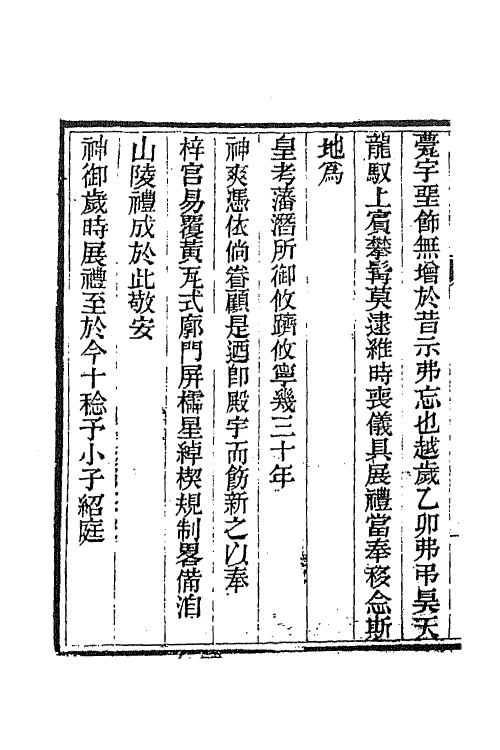 甍宇堊飾無增於昔示弗忘也越歲乙卯弗弔昊天
龍馭上賓攀髯莫逮維時喪儀具展禮當奉移念斯
地爲
皇考藩潛所御攸躋攸寧幾三十年
神爽憑依倘眷顧是迺卽殿宇而飭新之以奉
梓宮易覆黃瓦式廓門屏櫺星綽楔規制畧備洎
山陵禮成於此敬安
神御歲時展禮至於今十稔予小子紹庭